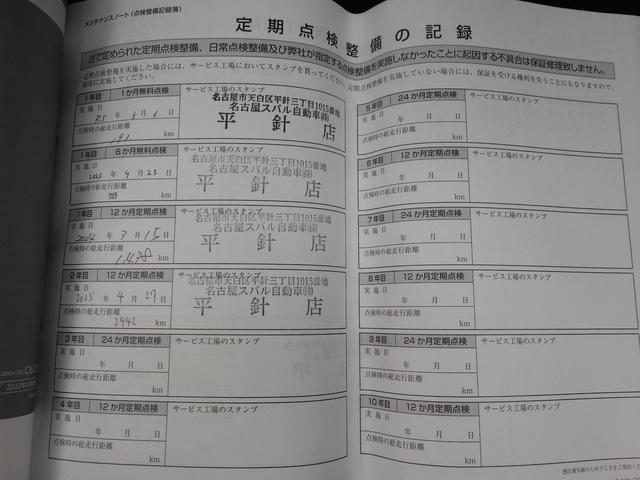 メンテナンスノート(点検整備記録簿)
定期点検整備の記録
法で定められた定期点検整備、日常点検整備及び弊社が指定する点検整備を実施しなかったことに起因する不具合は保証修理致しません。
定期点検整備を実施した場合には、サービス工場においてスタンプを買ってください。定期点検整備を実施していない場合には、保証を受ける権利を失うことにもなりますので、
確実に実施してください。
1年目 1か月無料点検 サービス工場のスタンプ
実施日
R5年 6月 6日
点検時の総走行距離
192 km
名古屋市天白区平針三丁目1015番地
名古屋スバル自動車㈱
平針店
1年目 6か月無料点検 サービス工場のスタンプ
実施日
2023年 9月 23日
点検時の総走行距離
km
名古屋市天白区平針三丁目1015番地
名古屋スバル自動車㈱
平針店
1年目 12か月定期点検 サービス工場のスタンプ
実施日
2024年 3月 15日
点検時の総走行距離
km
名古屋市天白区平針三丁目1015番地
名古屋スバル自動車㈱
平針店
2年目 12か月定期点検 サービス工場のスタンプ
実施日
2025年 4月 27日
点検時の総走行距離
2942 km
名古屋市天白区平針三丁目1015番地
名古屋スバル自動車㈱
平針店
3年目 24か月定期点検 サービス工場のスタンプ
実施日
年 月 日
点検時の総走行距離
km
4年目 12か月定期点検 サービス工場のスタンプ
実施日
年 月 日
点検時の総走行距離
km
5年目 24か月定期点検 サービス工場のスタンプ
実施日
年 月 日
点検時の総走行距離
km
6年目 12か月定期点検 サービス工場のスタンプ
実施日
年 月 日
点検時の総走行距離
km
7年目 24か月定期点検 サービス工場のスタンプ
実施日
年 月 日
点検時の総走行距離
km
8年目 12か月定期点検 サービス工場のスタンプ
実施日
年 月 日
点検時の総走行距離
km
9年目 24か月定期点検 サービス工場のスタンプ
実施日
年 月 日
点検時の総走行距離
km
10年目 12か月定期点検 サービス工場のスタンプ
実施日
年 月 日
点検時の総走行距離
km